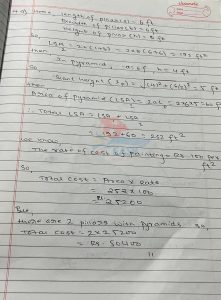 length of pillar(l) = 6 ft
Breadth of pillar(b) = 6 ft
Height of pillar(h) = 8 ft
So,
LSA = 2h(l+b) = 2×8(6+6) = 192 ft²
then,
In pyramid,
h = 4 ft
So,
Slant height
= 5 ft
then
Area of pyramid (LSA)
= 60 ft²
∴ Total LSA = LSA + LSA
= 192+60 = 252 ft²
We know,
The rate of cost of painting = Rs 100 per ft²
So,
Total cost = Area × Rate
= 252×100
= 25200
But
there are 2 pillars with pyramids so,
Total cost = 2×25200
= Rs. 50400